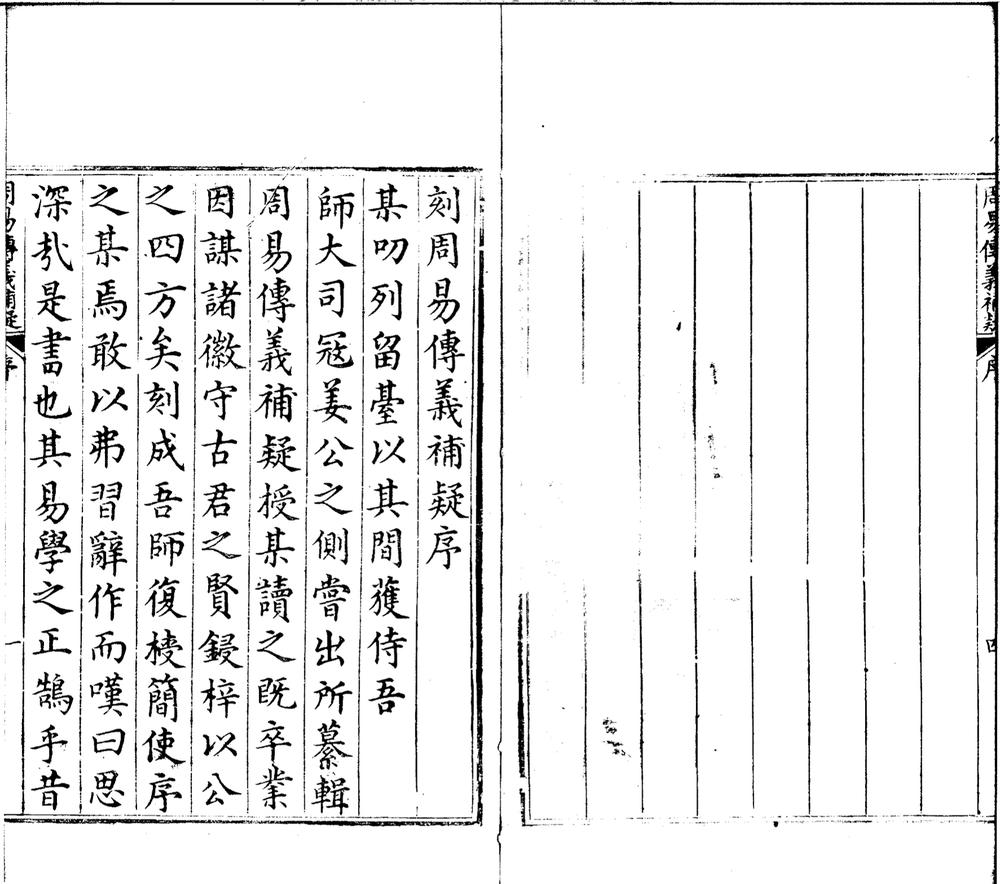 周易傳義補疑
序
四
刻周易傳義補疑序
某叨列留臺以其間獲侍吾
師大司冦姜公之側嘗出所纂輯
周易傳義補疑授某讀之既卒業
因謀諸徽守古君之賢鋟梓以公
之四方矣刻成吾師復
簡使序
之某焉敢以弗習辭作而嘆曰思
深㢤是書也其易學之正鵠乎昔
周易傳義補疑
序
一